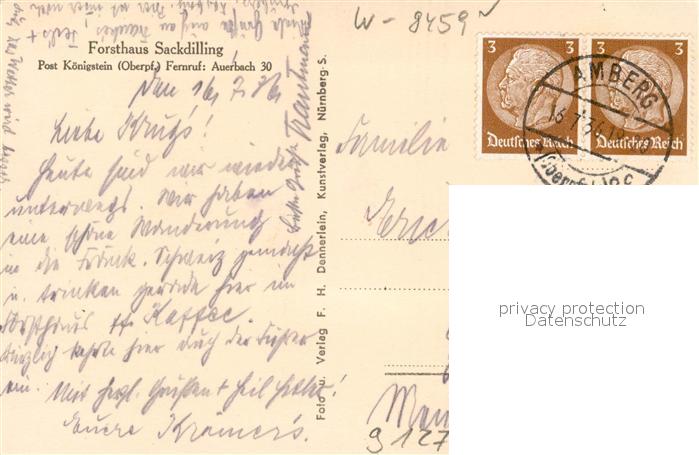 W - 8459
Forsthaus Sackdilling
Post Königstein (Oberpf.) Fernruf: Auerbach 30
Den 16. 7. 36.
Liebe Krug's!
Heute sind wir wieder
unterwegs. Wir haben
eine schöne Wanderung
in die Fränk. Schweiz gemacht
u. trinken gerade hier im
Forsthaus ff. Kaffee.
Kürzlich kehrte hier auch der Führer
ein. Mit herzl. Grüßen + Heil Hitler!
Euere Krämer's.
Foto u. Verlag F. H. Dennerlein, Kunstverlag, Nürnberg-S.
3 3
Deutsches Reich Deutsches Reich
AMBERG
Familie
Eric
privacy protection
Datenschutz
9127